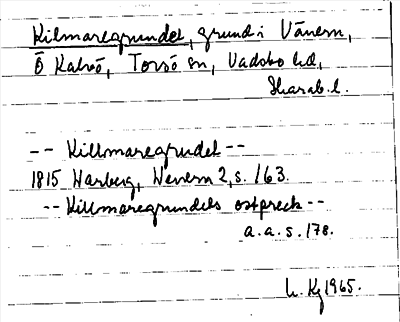 Kilmaregrundet, grund i Vänern,
Ö Kalvö, Torsö sn, Vadsbo hd,
Skarab. l.
-- Killmaregrudet --
1815 Warberg, Wenern 2, s. 163.
-- Killmaregrundets ostpreck --
a.a.s. 178.
1965.